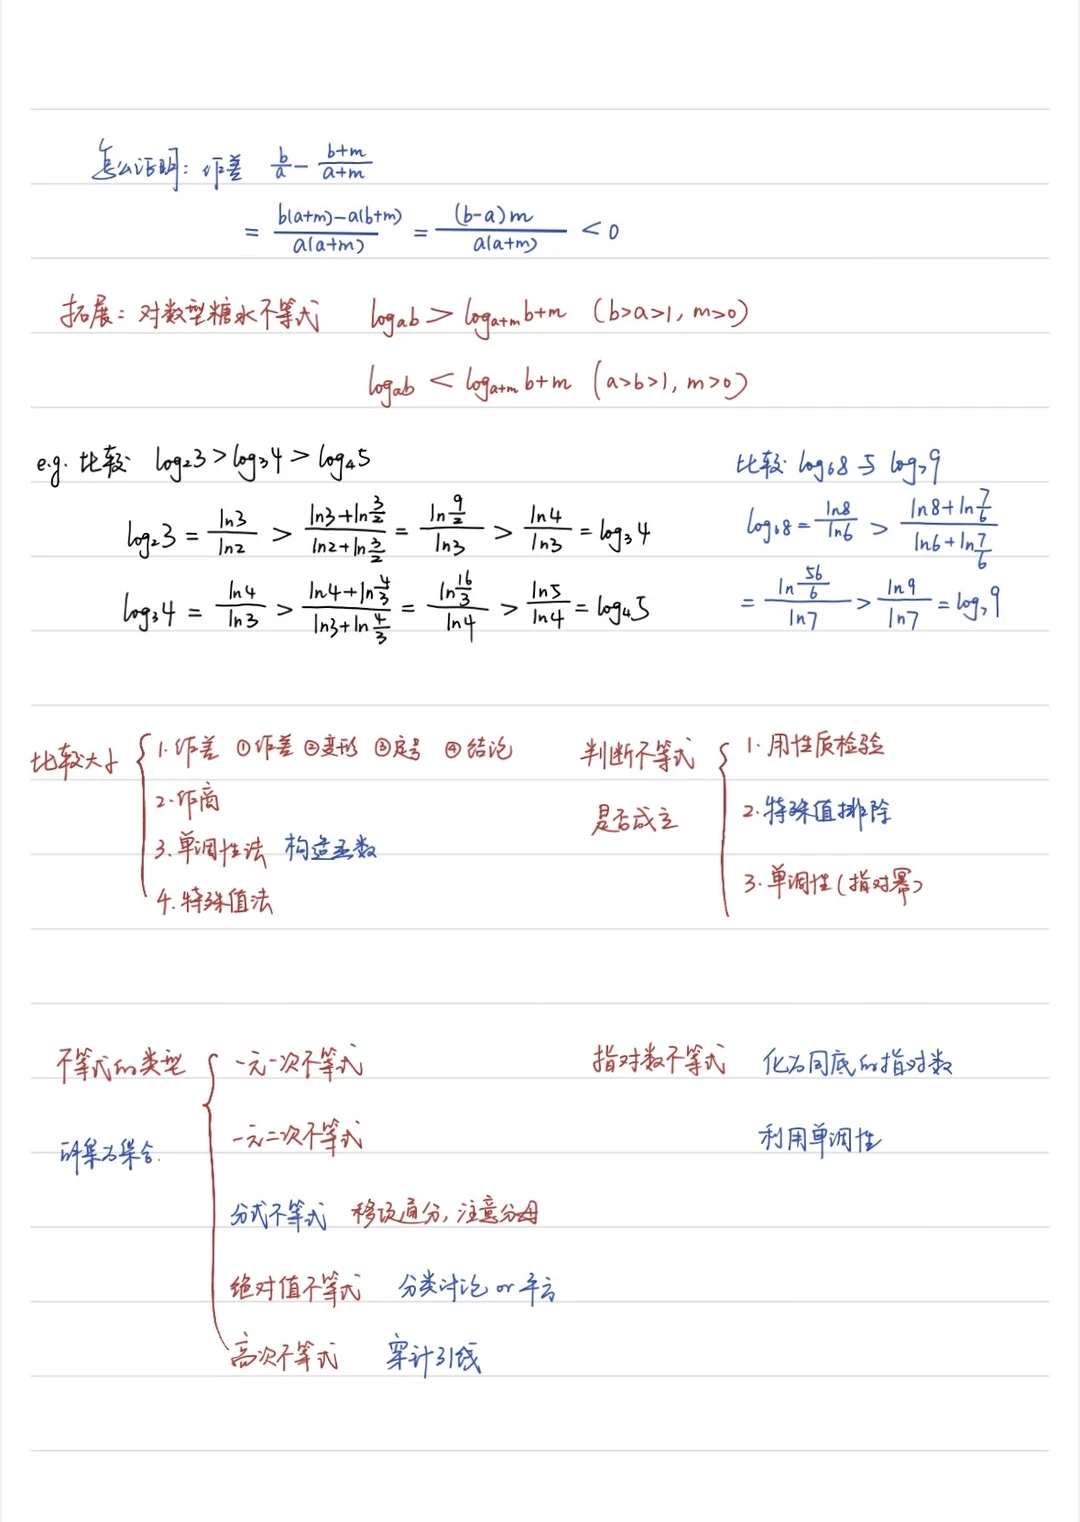 怎么证明：作差 b/a - (b+m)/(a+m)
= (b(a+m)-a(b+m))/(a(a+m)) = ((b-a)m)/(a(a+m)) < 0
拓展：对数型糖水不等式 logₐb > logₐ₊ₘb+m (b>a>1, m>0)
logₐb < logₐ₊ₘb+m (a>b>1, m>0)
e.g. 比较 log₂3 > log₃4 > log₄5
log₂3 = ln3/ln2 > (ln3+ln3/2)/(ln2+ln3/2) = (ln9/2)/ln3 > ln4/ln3 = log₃4
log₃4 = ln4/ln3 > (ln4+ln4/3)/(ln3+ln4/3) = (ln16/3)/ln4 > ln5/ln4 = log₄5
比较 log₆8与 log₇9
log₆8 = ln8/ln6 > (ln8+ln7/6)/(ln6+ln7/6)
= (ln56/6)/ln7 > ln9/ln7 = log₇9
比较大小
1.作差 ①作差 ②变形 ③定号 ④结论
2.作商
3.单调性法 构造函数
4.特殊值法
判断不等式
是否成立
1.用性质检验
2.特殊值排除
3.单调性(指对幂)
不等式的类型
解集为集合.
一元一次不等式
一元二次不等式
分式不等式 移项通分,注意分母
绝对值不等式 分类讨论 or 平方
高次不等式 穿针引线
指对数不等式 化为同底的指对数
利用单调性